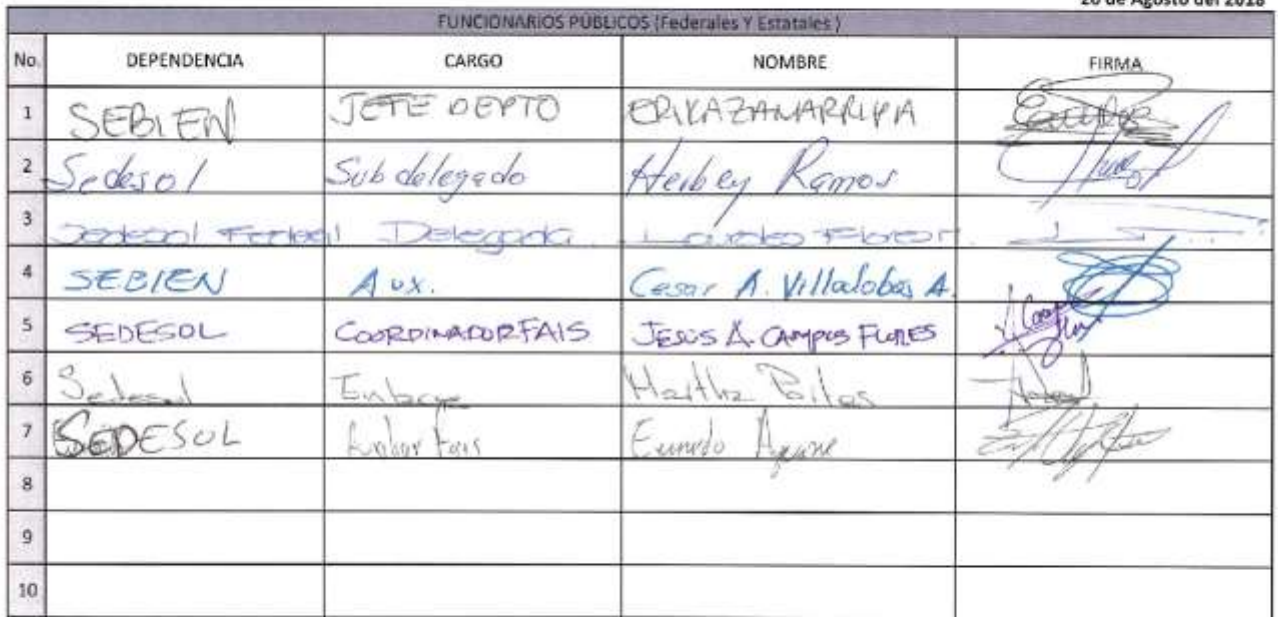 20 de Agosto del 2018
FUNCIONARIOS PÚBLICOS (Federales Y Estatales )
No. DEPENDENCIA CARGO NOMBRE FIRMA
1 SEBIEN JEFE DEPTO ERIKA ZAMARRIPA
2 Sedesol Subdelegado Herbey Ramos
3 Sedesol Federal Delegada Lourdes Flores
4 SEBIEN Aux. Cesar A. Villalobos A.
5 SEDESOL COORDINADOR FAIS JESÚS A. CAMPOS FLORES
6 Sedesol Enlace Martha
7 SEDESOL Fais
8
9
10